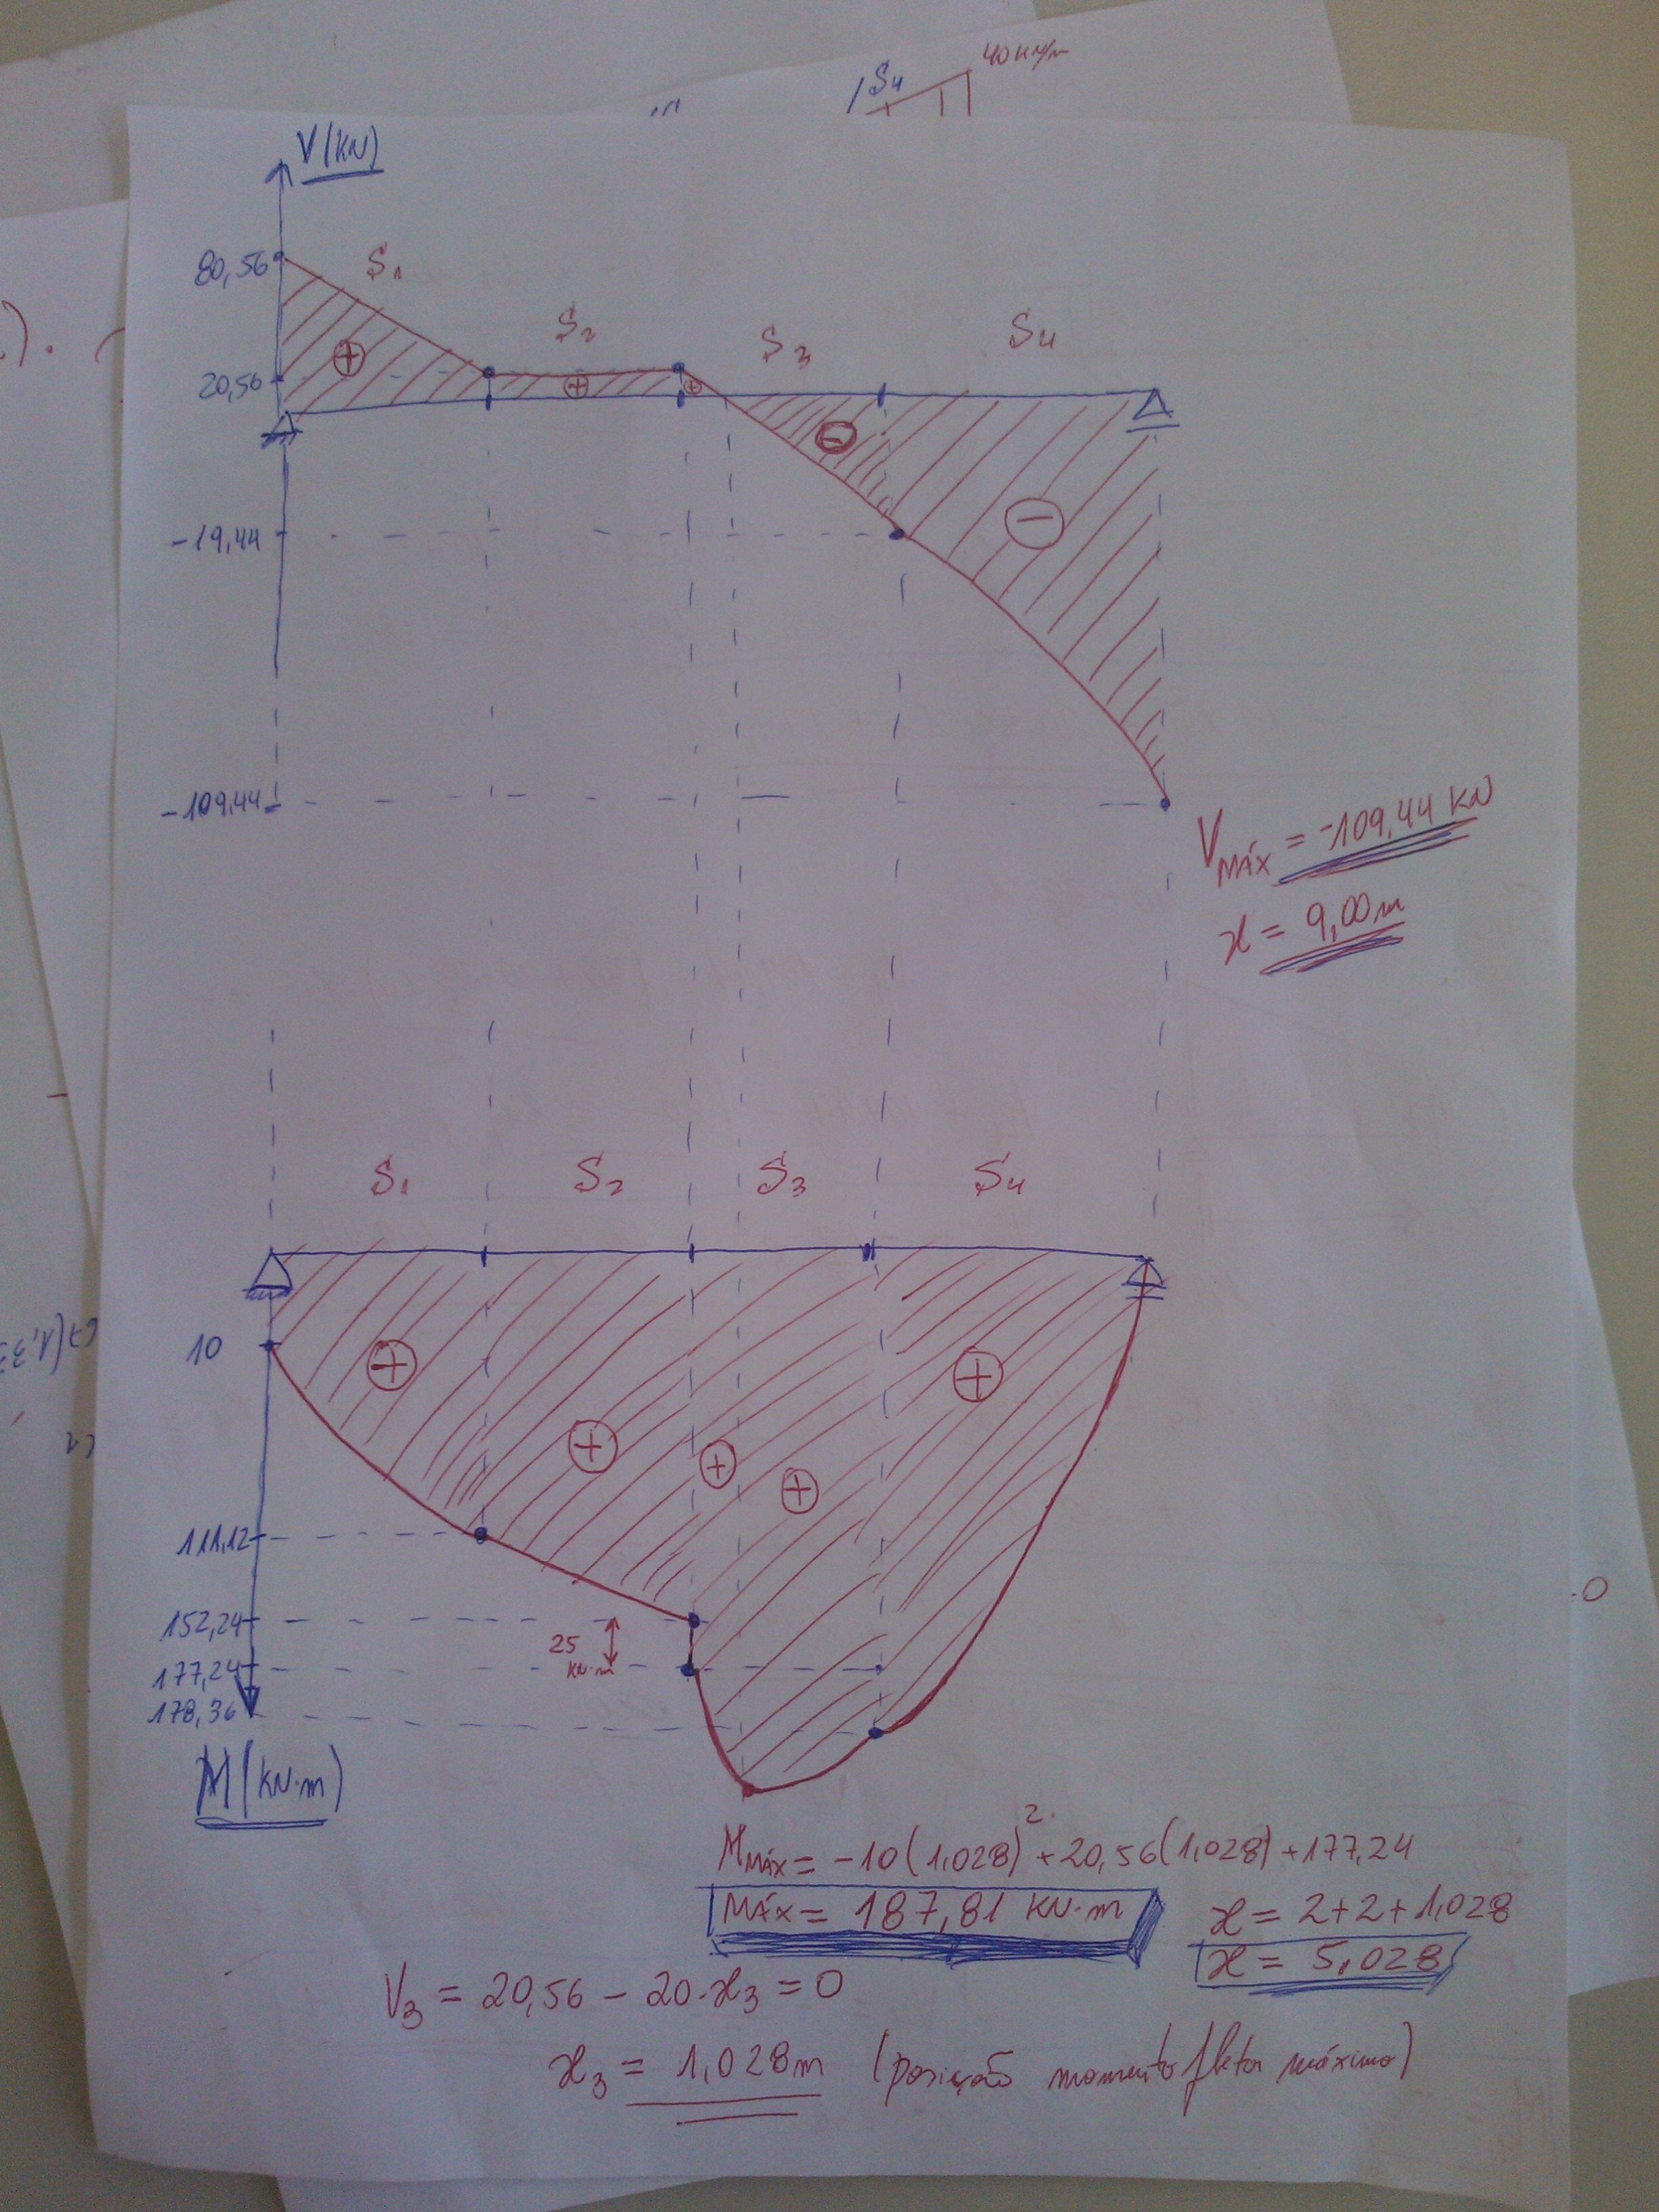 40 KN/m
S4
V(KN)
80,56
S1
S2
S3
S4
20,56
-19,44
-109,44
VMÁX = -109,44 KN
x = 9,00m
S1
S2
S3
S4
10
111,12
152,24
25
KN·m
177,24
178,36
M(KN·m)
MMÁX = -10(1,028)² + 20,56(1,028) + 177,24
MÁX = 187,81 KN·m
x = 2+2+1,028
x = 5,028
V3 = 20,56 - 20·x3 = 0
x3 = 1,028m (posição momento fletor máximo)